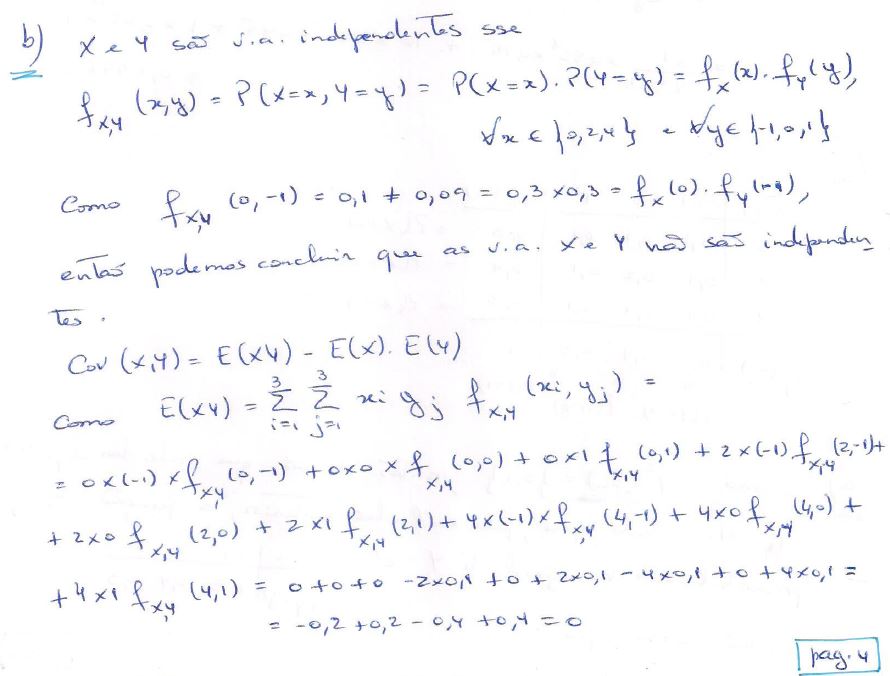 b) X e Y são v.a. independentes sse
f_{X,Y} (x,y) = P(X=x, Y=y) = P(X=x). P(Y=y) = f_X(x). f_Y(y),
∀x ∈ {0,2,4} e ∀y ∈ {-1,0,1}
Como f_{X,Y} (0,-1) = 0,1 ≠ 0,09 = 0,3 x 0,3 = f_X(0). f_Y(-1),
então podemos concluir que as v.a. X e Y não são independen
tes.
Cov (X,Y) = E(XY) - E(X). E(Y)
Como E(XY) = Σ_{i=1}^{3} Σ_{j=1}^{3} xi yj f_{X,Y} (xi, yj) =
= 0x(-1) x f_{X,Y} (0,-1) + 0x0 x f_{X,Y} (0,0) + 0x1 f_{X,Y} (0,1) + 2x(-1) f_{X,Y} (2,-1) +
+ 2x0 f_{X,Y} (2,0) + 2x1 f_{X,Y} (2,1) + 4x(-1) x f_{X,Y} (4,-1) + 4x0 f_{X,Y} (4,0) +
+ 4x1 f_{X,Y} (4,1) = 0+0+0 -2x0,1 +0 + 2x0,1 - 4x0,1 + 0 + 4x0,1 =
= -0,2 +0,2 - 0,4 +0,4 = 0
pag. 4